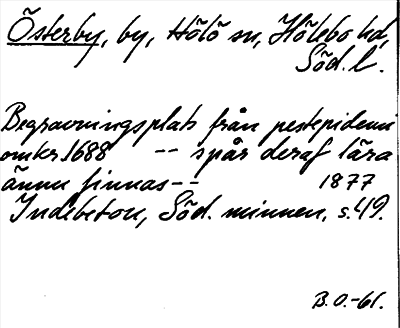 Österby, by, Hölö sn, Hölebo hd,
Söd. l.
Begravningsplats från pestepidemi
omkr. 1688 -- spår deraf lära
ännu finnas --   1877
Indebetou, Söd. minnen, s. 49.
B.O.-61.